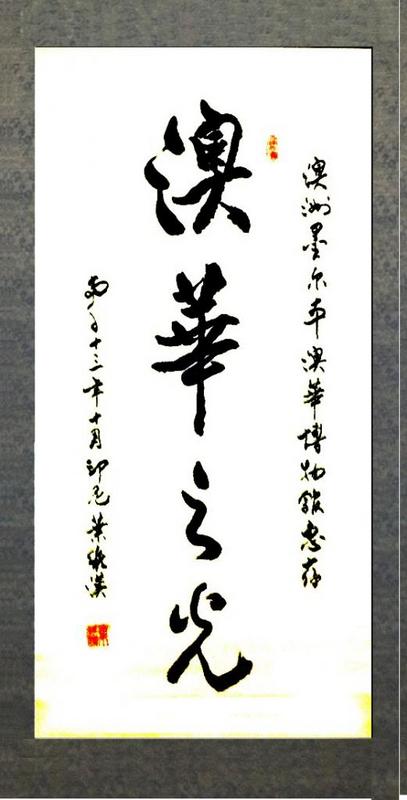 澳洲墨尔本澳華博物館惠存
澳華之光
两千十三年十月印尼葉漢